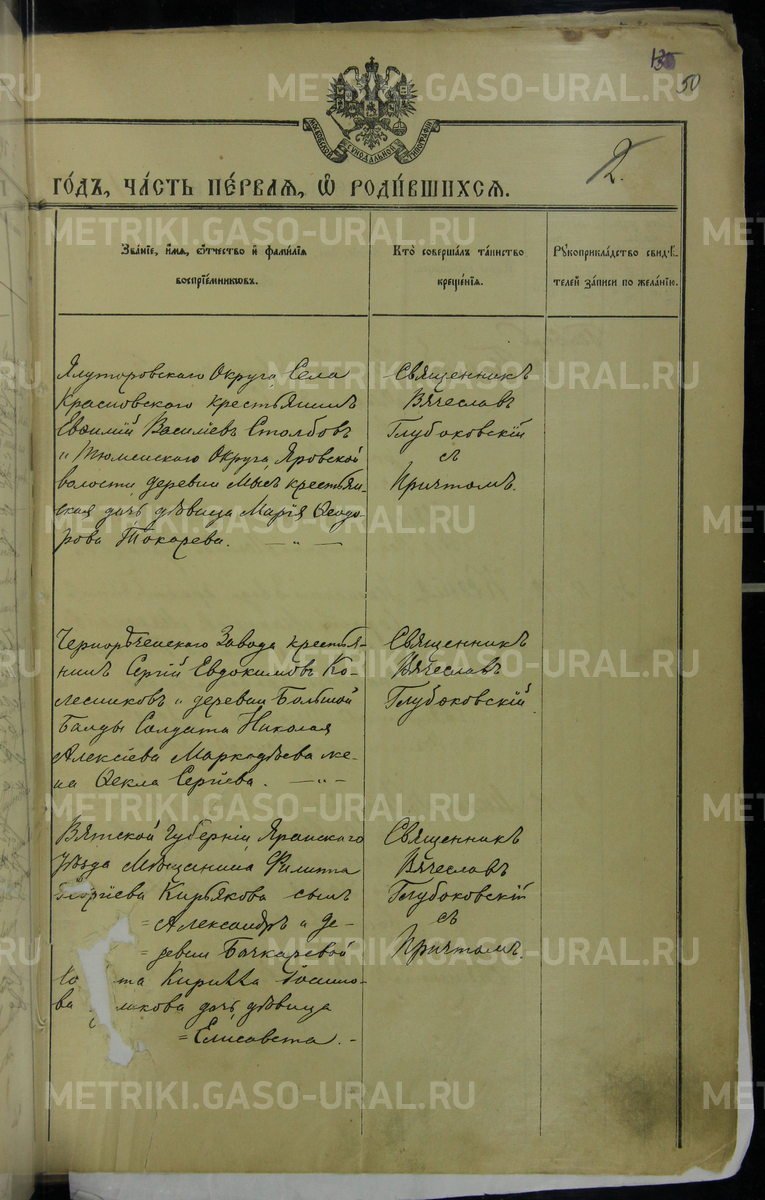 135
50
МОСКОВСКОЙ СѴНОДАЛЬНОЙ ТИПОГРАФІИ
2.
го́дъ, ча́сть пе́рвая, ѡ҆ роди́вшихся.
Зва́ніе, и҆́мя, о҆́тчество и҆ фами́лія
воспріе́мниковъ.
Кто̀ соверша́лъ та́инство
креще́нія.
Рꙋкоприкла́дство свидѣ́-
телей за́писи по жела́нію.
Ялуторовскаго Округа, Села
Красновскаго крестьянинъ
Евѳимій Василіевъ Столбовъ
и Тюменскаго Округа, Яровской
волости, деревни Мысъ крестьян-
ская дочь, дѣвица Марія Ѳеодо-
рова Токарева.
Священникъ
Вячеславъ
Глубоковскій
съ
Причтомъ.
Чернорѣченскаго Завода крестья-
нинъ Сергій Евдокимовъ Ко-
лесниковъ и деревни Большой
Балды Солдата Николая
Алексіева Маркадѣева же-
на Ѳекла Сергіева.
Священникъ
Вячеславъ
Глубоковскій
Вятской Губерніи, Яранскаго
Уѣзда Мѣщанина Филиппа
Георгіева Кирьякова сынъ
= Александръ и де-
= ревни Бочкаревой
та Кирилла
ва дочь, дѣвица
= Елисавета. -
Священникъ
Вячеславъ
Глубоковскій
съ
Причтомъ.
METRIKI.GASO-URAL.RU